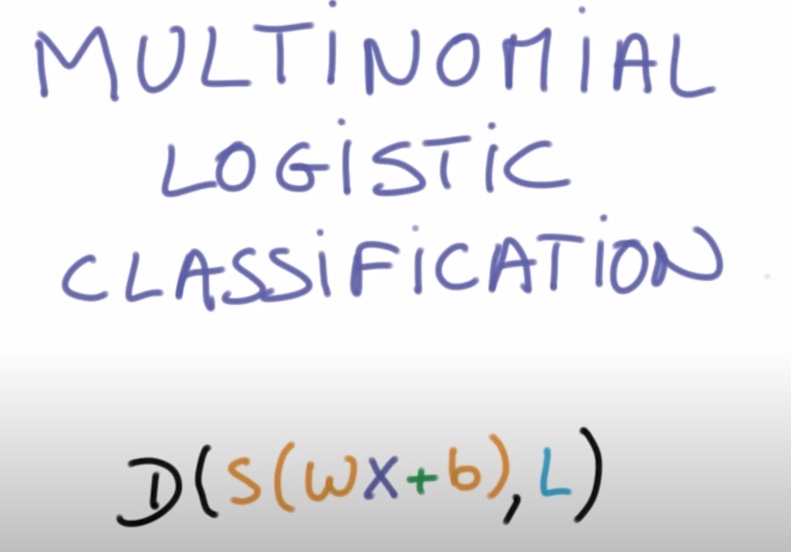 MULTiNOMiAL
LOGiSTiC
CLASSiFiCATiON
D(S(WX+b),L)